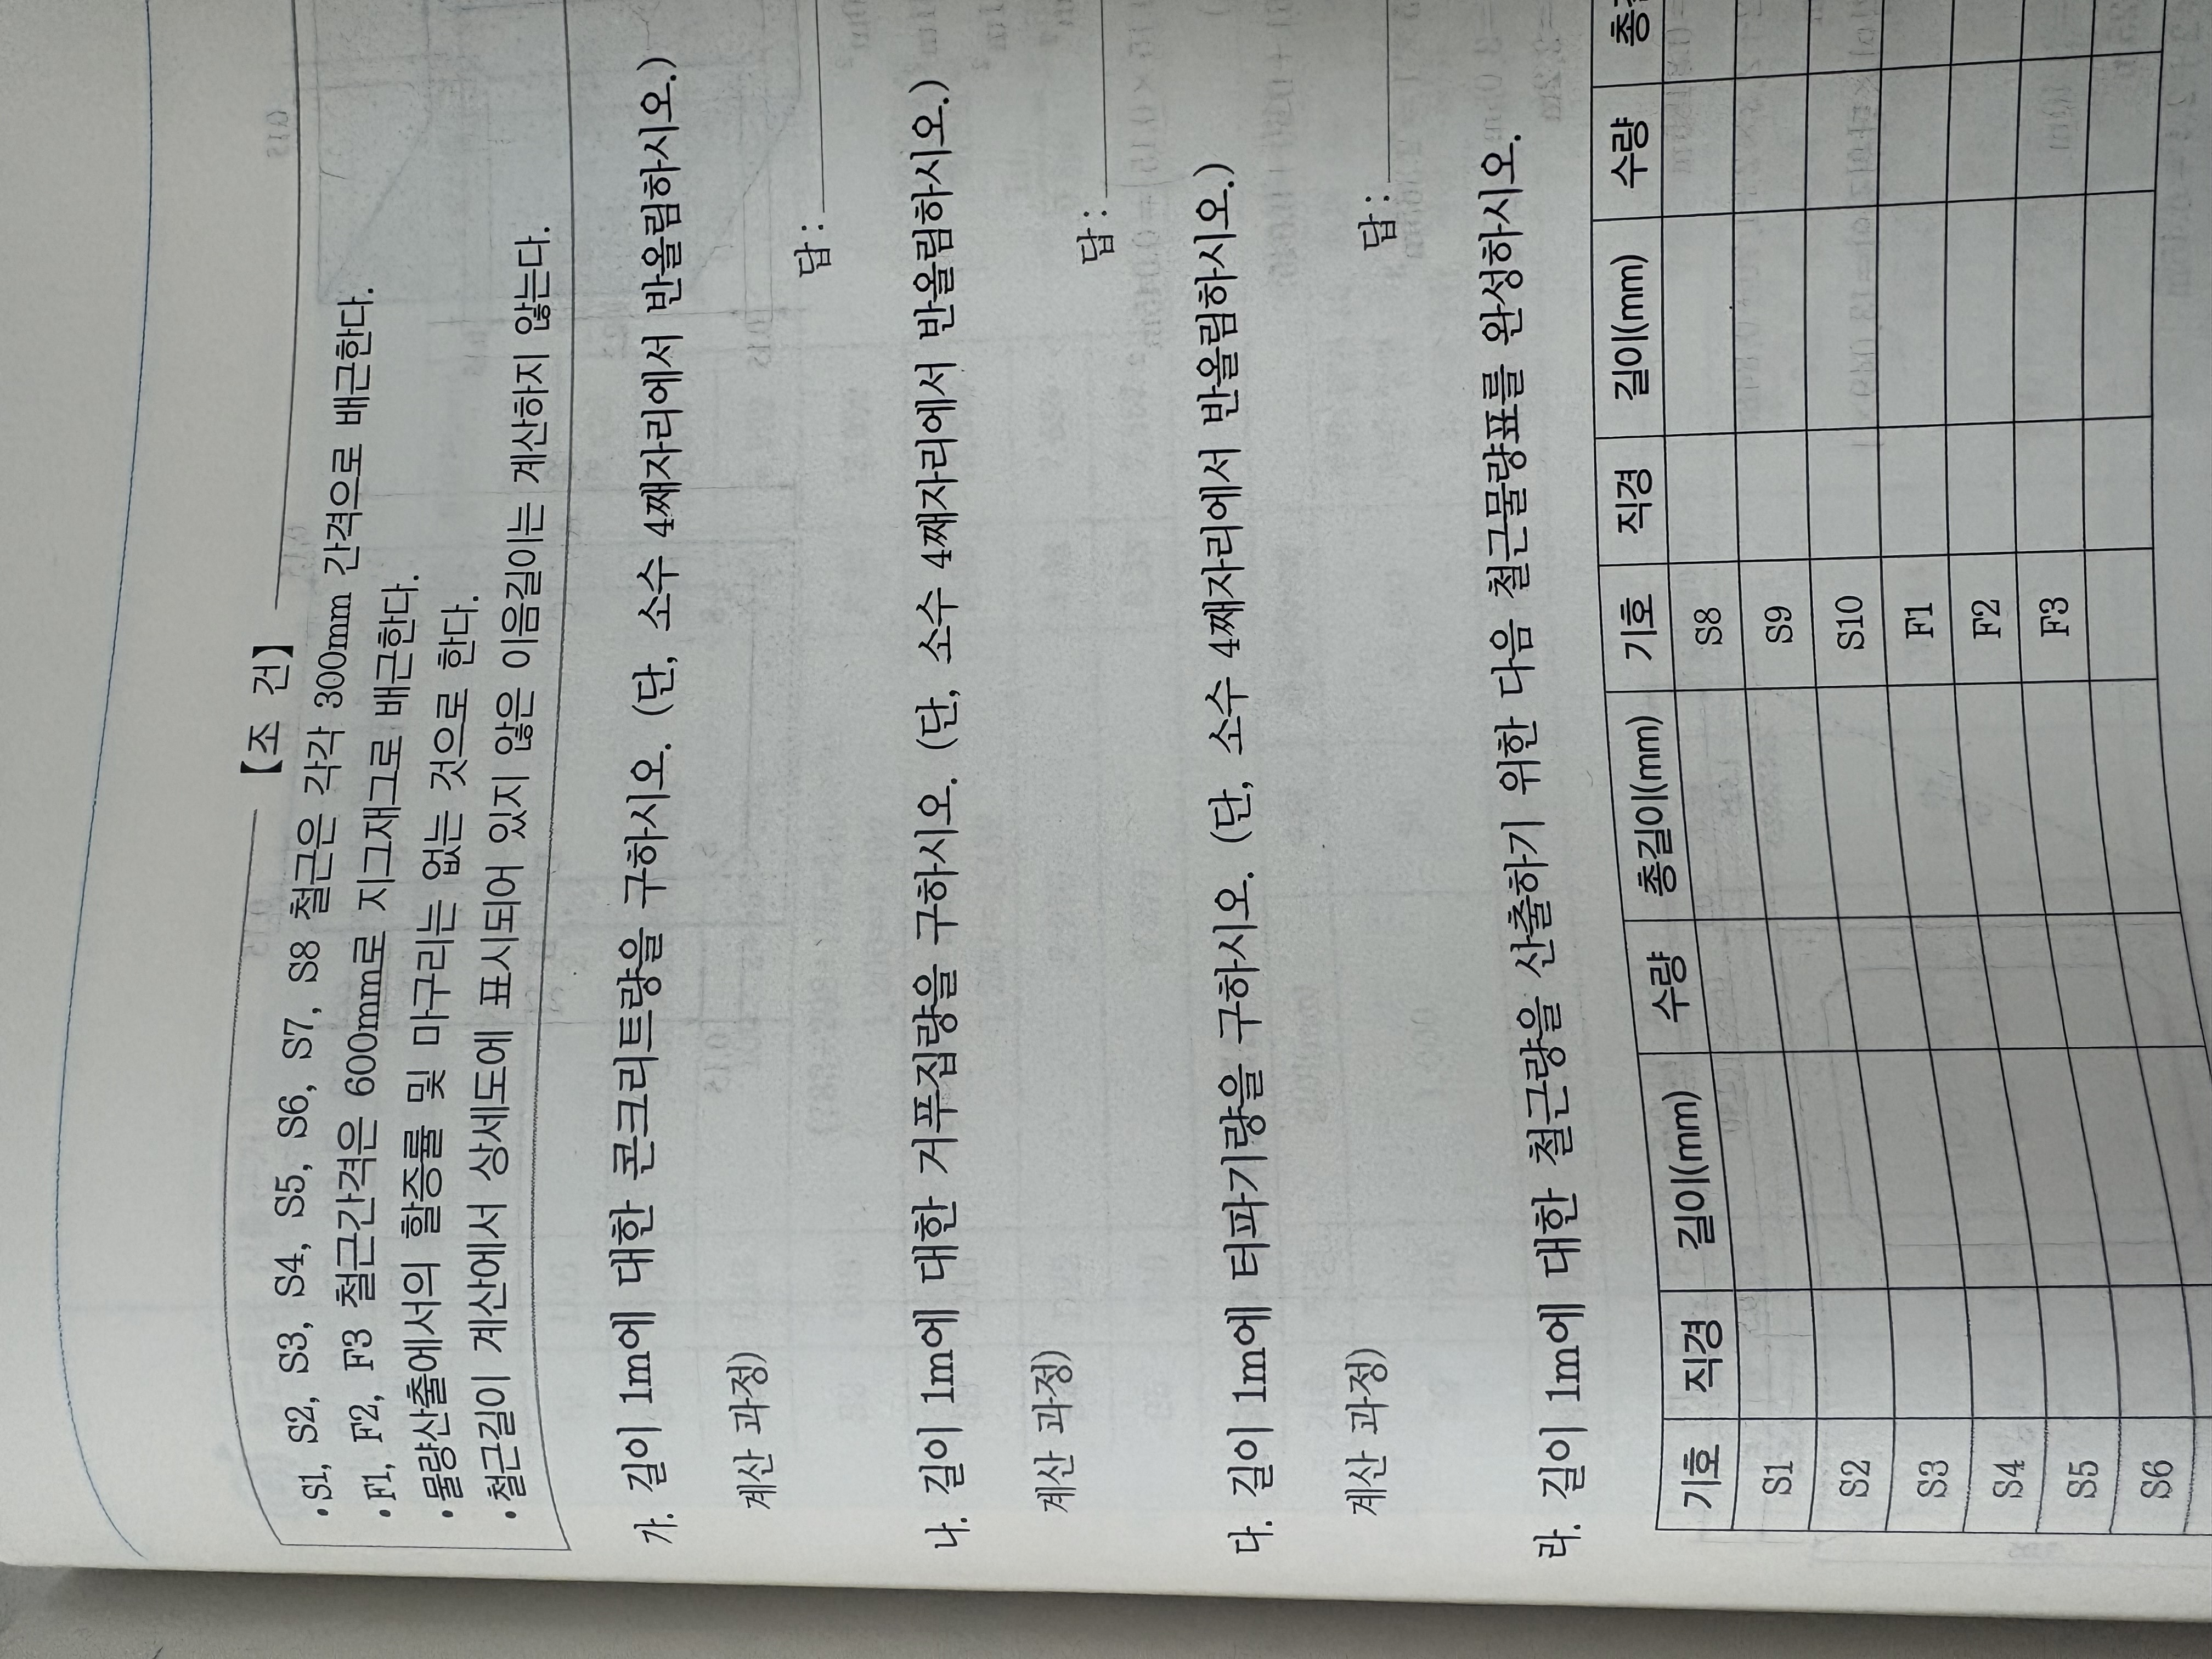 【조 건】
•S1, S2, S3, S4, S5, S6, S7, S8 철근은 각각 300mm 간격으로 배근한다.
•F1, F2, F3 철근간격은 600mm로 지그재그로 배근한다.
•물량산출에서의 할증률 및 마구리는 없는 것으로 한다.
•철근길이 계산에서 상세도에 표시되어 있지 않은 이음길이는 계산하지 않는다.
가. 길이 1m에 대한 콘크리트량을 구하시오. (단, 소수 4째자리에서 반올림하시오.)
계산 과정)
답 :
나. 길이 1m에 대한 거푸집량을 구하시오. (단, 소수 4째자리에서 반올림하시오.)
계산 과정)
답 :
다. 길이 1m에 터파기량을 구하시오. (단, 소수 4째자리에서 반올림하시오.)
계산 과정)
답 :
라. 길이 1m에 대한 철근량을 산출하기 위한 다음 철근물량표를 완성하시오.
기호 직경 길이(mm) 수량 총길이(mm) 기호 직경 길이(mm) 수량
S1 S8
S2 S9
S3 S10
S4 F1
S5 F2
S6 F3